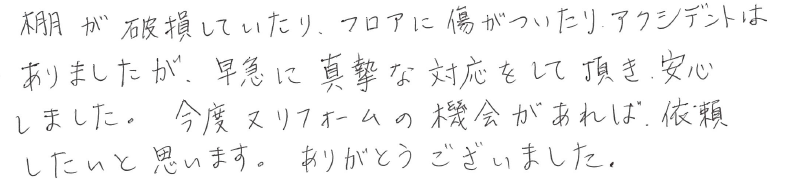 棚が破損していたり、フロアに傷がついたり、アクシデントは
ありましたが、早急に真摯な対応をして頂き、安心
しました。 今度又リフォームの機会があれば、依頼
したいと思います。 ありがとうございました。